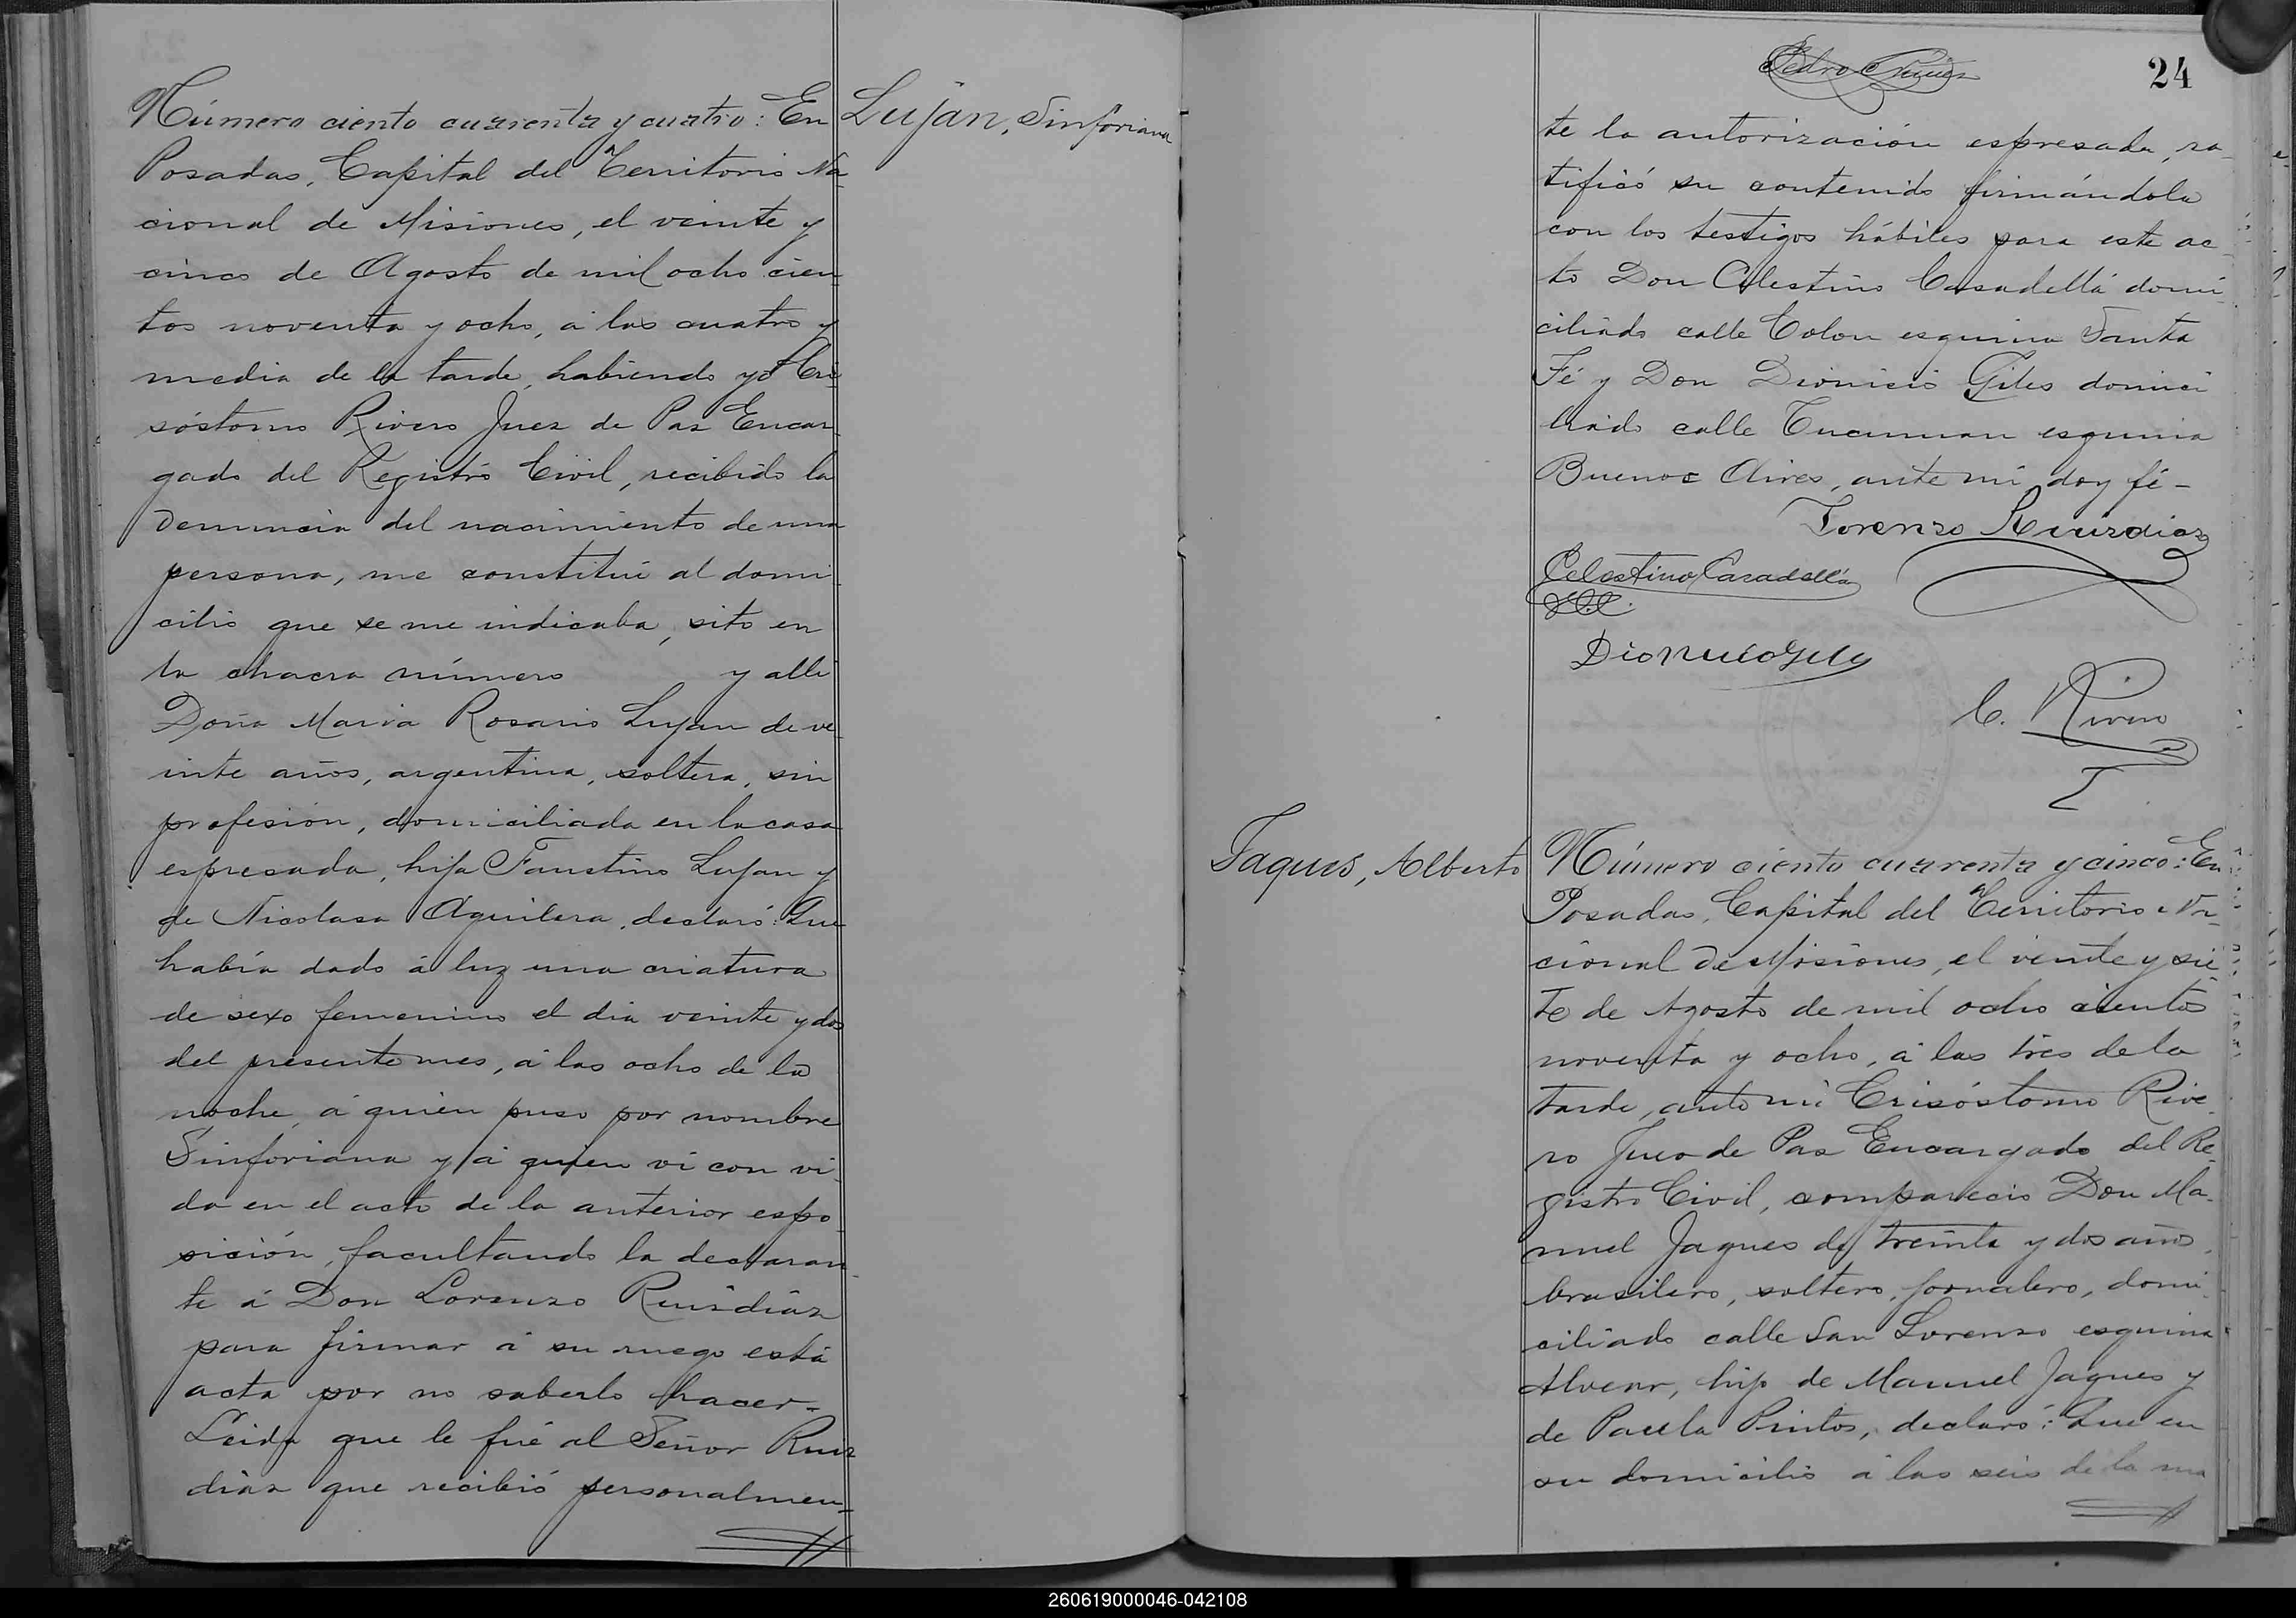 Número ciento cuarenta y cuatro: En
Posadas, Capital del Territorio Na-
cional de Misiones, el veinte y
cinco de Agosto de mil ocho cien-
tos noventa y ocho, á las cuatro y
media de la tarde, habiendo yó Cri-
sóstomo Rivero Juez de Paz Encar-
gado del Registro Civil, recibido la
denuncia del nacimiento de una
persona, me constituí al domi-
cilio que se me indicaba, sito en
la chacra número y alli
Doña Maria Rosario Lujan de ve-
inte años, argentina, soltera, sin
profesión, domiciliada en la casa
espresada, hija Faustino Lujan y
de Nicolasa Aguilera, declaró: Que
había dado á luz una criatura
de sexo femenino el dia veinte y dos
del presente mes, á las ocho de la
noche, á quien puso por nombre
Sinforiana y á quien vi con vi-
da en el acto de la anterior espo-
sición, facultando la declaran-
te á Don Lorenzo Ruisdiáz
para firmar á su ruego está
acta por no saberlo hacer.-
Leida que le fué al Señor Ruiz
diáz que recibió personalmen-
Lujan, Sinforiana
24
te la autorización espresada, ra-
tificó su contenido firmándola
con los testigos hábiles para este ac-
to Don Celestino Casadellá domi-
ciliado calle Colon esquina Santa
Fé y Don Dionicio Giles domici
liado calle Tucuman esquina
Buenos Aires, ante mi doy fé-
Lorenzo Ruisdias
Celestino Casadellá
C. Rivero
Jaques, Alberto
Número ciento cuarenta y cinco: En
Posadas, Capital del Territorio Na-
cional de Misiones, el veinte y sie-
te de Agosto de mil ocho cientos
noventa y ocho, á las tres de la
tarde, ante mi Crisóstomo Rive-
ro Juez de Paz Encargado del Re-
gistro Civil, compareció Don Ma-
nuel Jaques de treinta y dos años,
brasilero, soltero, jornalero, domi-
ciliado calle San Lorenzo esquina
Alvear, hijo de Manuel Jaques y
de Paula Pintos, declaró: Que en
su domicilio á las seis de la ma
260619000046-042108